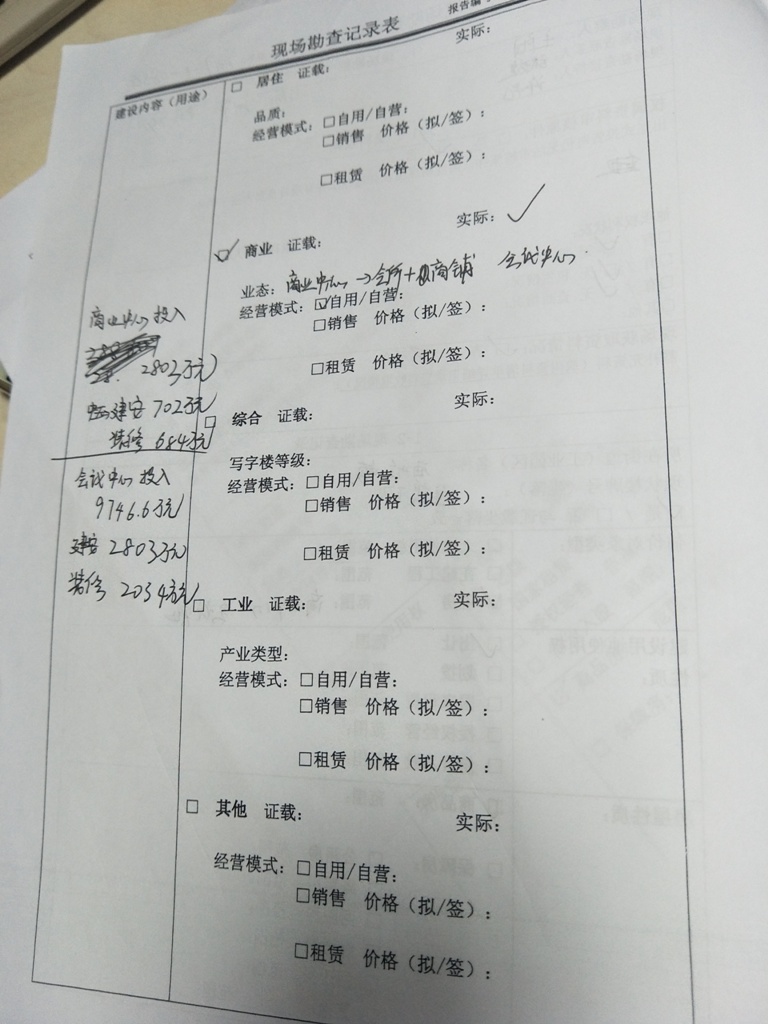 现场勘查记录表
报告编
建设内容（用途）
□ 居住 证载： 实际：
品质：
经营模式：□自用/自营：
□销售 价格（拟/签）：
□租赁 价格（拟/签）：
☑ 商业 证载： 实际：✓
业态：商业中心→会所+商铺 会议中心
经营模式：☑自用/自营：
□销售 价格（拟/签）：
□租赁 价格（拟/签）：
商业中心投入
2803万元
建安702万元
装修684万元
会议中心投入
9746.6万元
建安2803万元
装修2034万元
□ 综合 证载： 实际：
写字楼等级：
经营模式：□自用/自营：
□销售 价格（拟/签）：
□租赁 价格（拟/签）：
□ 工业 证载： 实际：
产业类型：
经营模式：□自用/自营：
□销售 价格（拟/签）：
□租赁 价格（拟/签）：
□ 其他 证载： 实际：
经营模式：□自用/自营：
□销售 价格（拟/签）：
□租赁 价格（拟/签）：